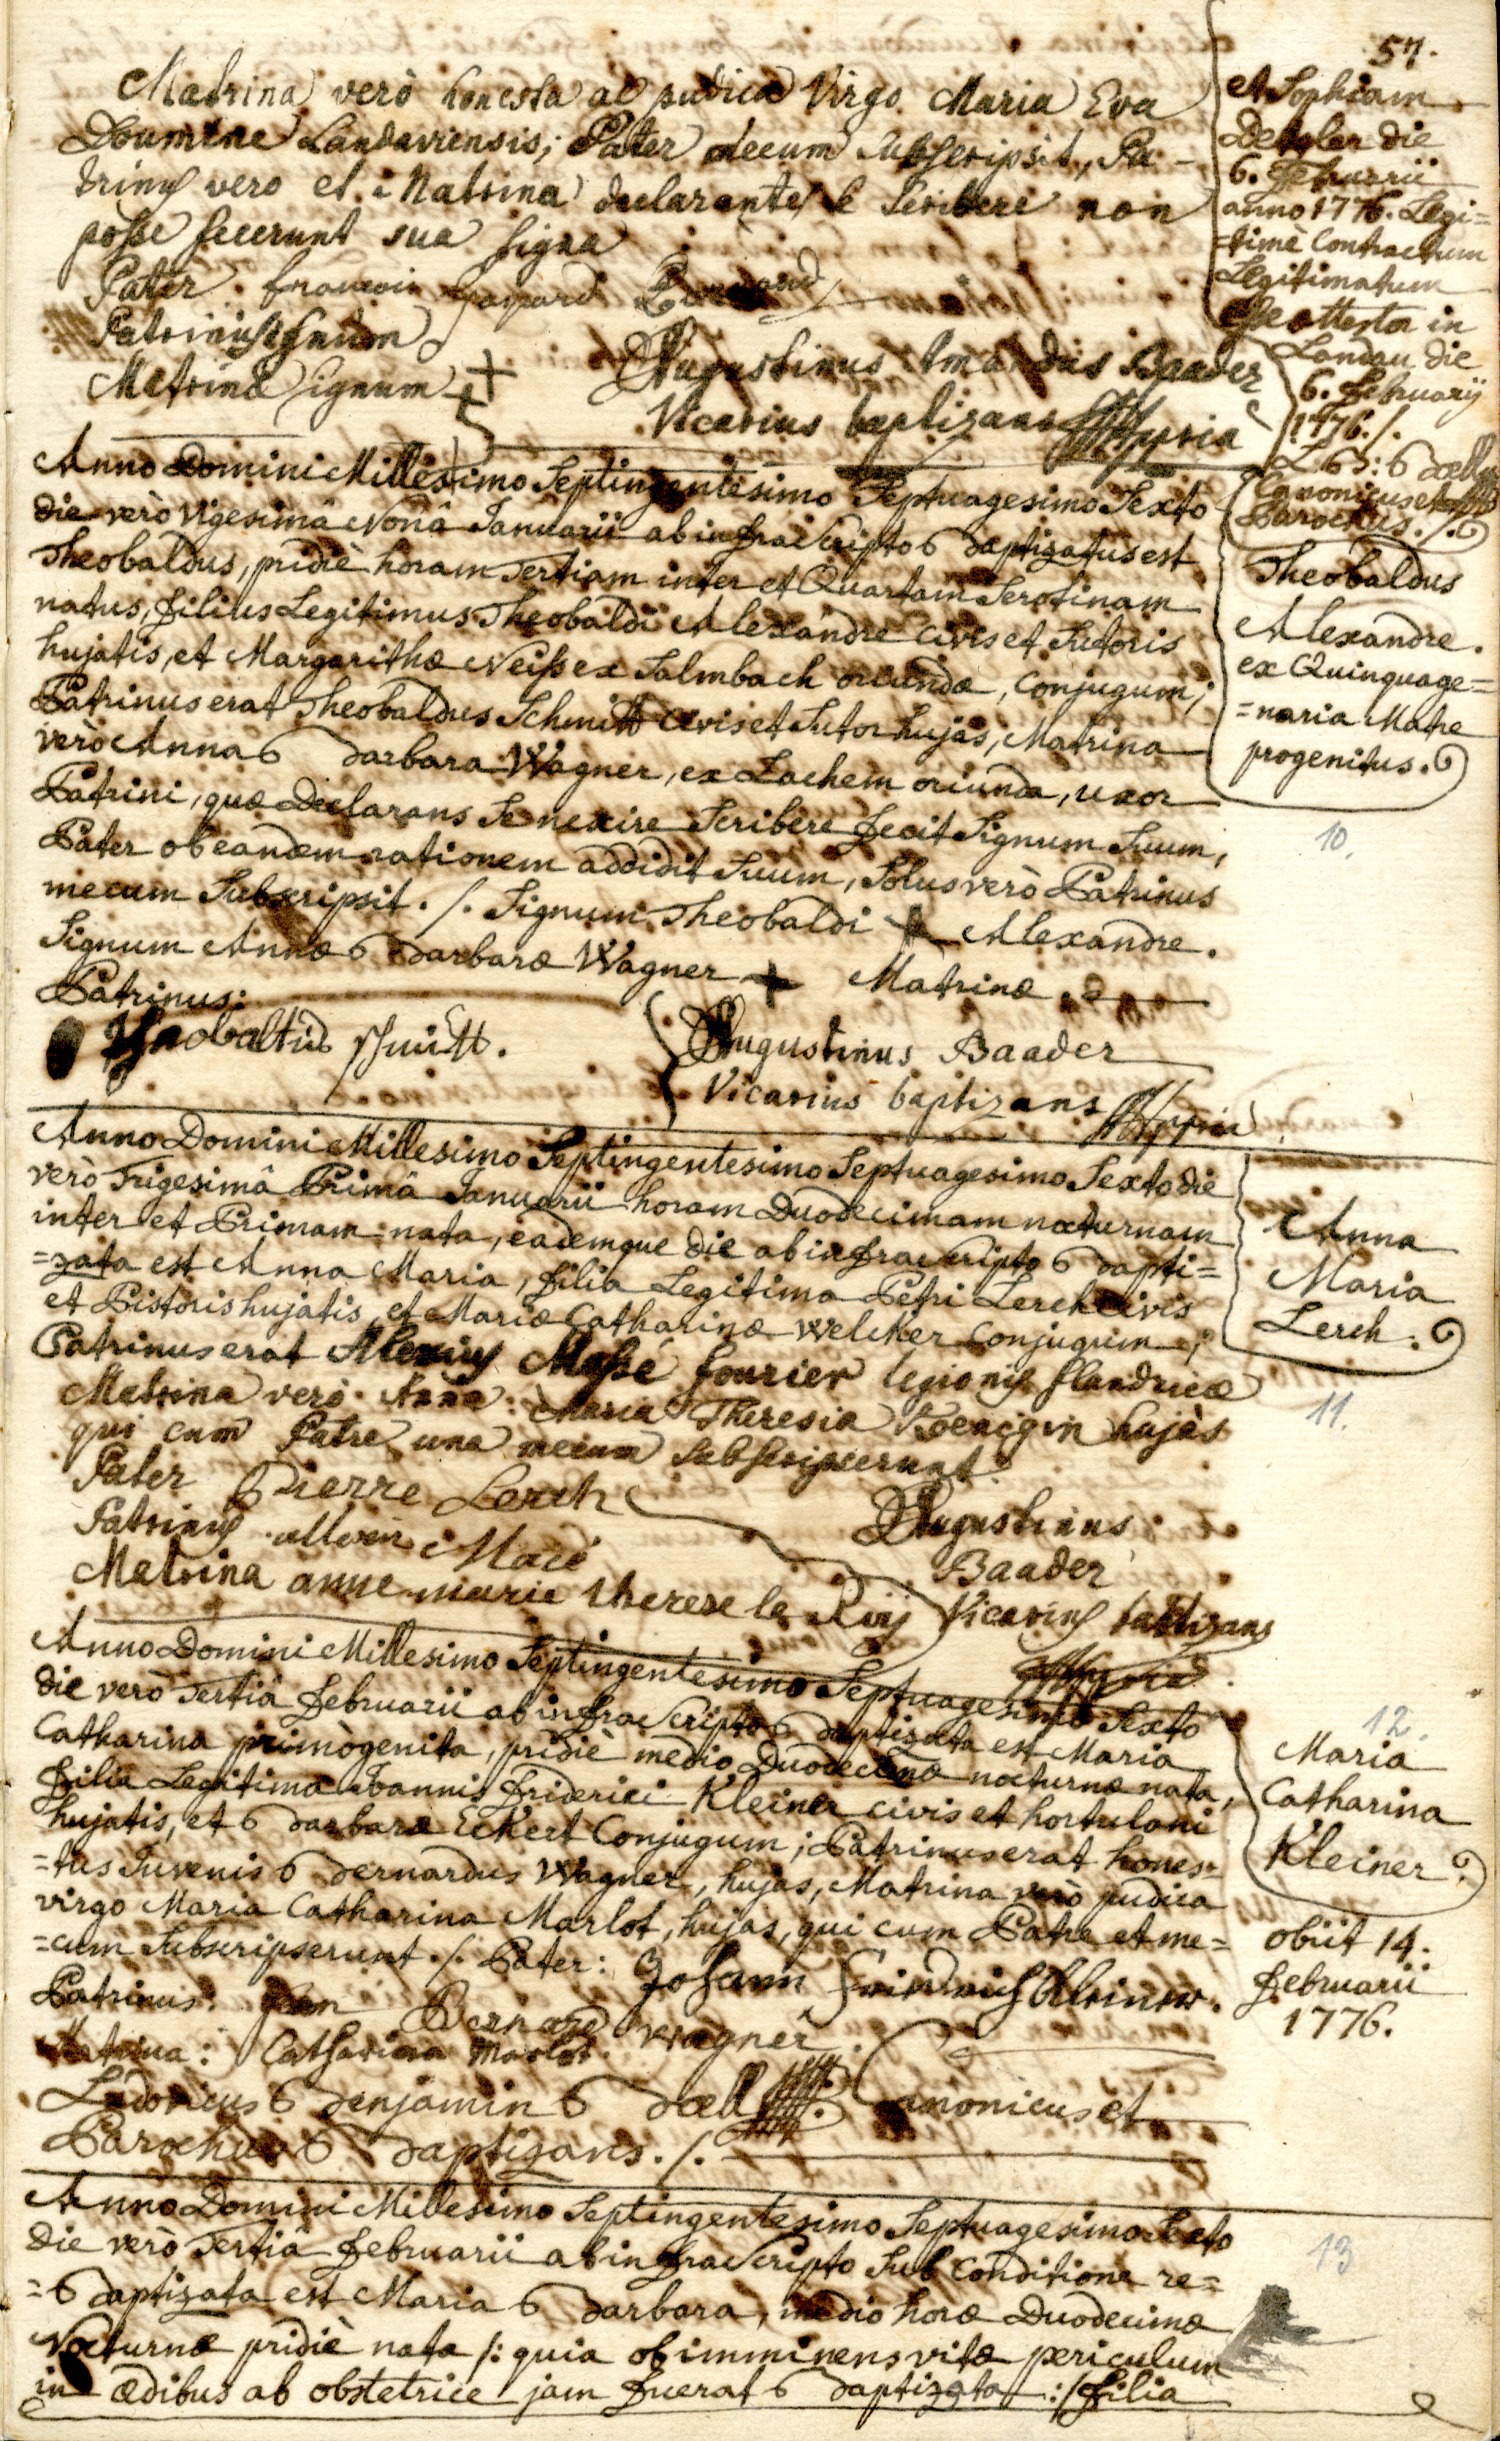 57.
Matrina verò honesta ac pudica Virgo Maria Eva
Doumene Landaviensis; Pater mecum subscripsit, Pa-
trinus vero et Matrina declarantes se scribere non
posse fecerunt sua signa
Pater francois Gaspard
Patrini signum
Matrina signum +
Augustinus Amandus Baader
Vicarius baptizans mppria
et Sophiam
Detzler die
6. Februarii
anno 1776. Legi=
=timè Contractum
Legitimatum
esse attestor in
Landau die
6. February
1776. /.
L: B: Boell
Canonicus et
Parochus. /.
Anno Domini Millesimo Septingentesimo Septuagesimo Sexto
die verò Vigesimâ Nonâ Ianuarii ab infrascripto Baptizatus est
Theobaldus, pridiè horam Tertiam inter et Quartam Serotinam
natus, filius Legitimus Theobaldi Alexandre Civis et Sutoris
hujatis, et Margarithæ Neiss ex Salmbach oriundæ, Conjugum;
Patrinus erat Theobaldus Schmitt Civis et Sutor hujas, Matrina
verò Anna Barbara Wagner, ex Lachem oriunda, uxor
Patrini, quæ Declarans Se nescire Scribere fecit Signum Suum,
Pater ob eandem rationem addidit Suum, Solus verò Patrinus
mecum Subscripsit. /. Signum Theobaldi + Alexandre.
Signum Annæ Barbaræ Wagner + Matrinæ.
Patrinus:
Theobaltus Schmitt.
Augustinus Baader
Vicarius baptizans mppria
Theobaldus
Alexandre.
ex Quinquage=
=naria Matre
progenitus.
10.
Anno Domini Millesimo Septingentesimo Septuagesimo Sexto die
verò Trigesimâ Primâ Ianuarii horam Duodecimam nocturnam
inter et Primam nata, eademque die ab infrascripto Bapti=
=zata est Anna Maria, filia Legitima Petri Lerch civis
et Pistoris hujatis, et Mariæ Catharinæ Welcker Conjugum;
Patrinus erat Alexius Massé fourier legionis flandricæ
Matrina verò Anna Maria Theresia Koenigin hujas
qui cum Patre una mecum subscripserunt
Pater Pierre Lerch
Patrinus Macé
Matrina anne marie therese le Roij
Augustinus
Baader
Vicarius baptizans
mppria
Anna
Maria
Lerch.
11.
Anno Domini Millesimo Septingentesimo Septuagesimo Sexto
die verò Tertiâ februarii ab infrascripto Baptizata est Maria
Catharina primògenita, pridiè medio Duodecimæ nocturnæ nata,
filia Legitima Ioannis friderici Kleiner civis et hortulani
hujatis, et Barbaræ Eckert Conjugum; Patrinus erat hones=
=tus Iuvenis Bernardus Wagner, hujas, Matrina verò pudica
virgo Maria Catharina Marlot, hujas, qui cum Patre et me=
=cum Subscripserunt. /. Pater: Johann Friedrich Kleiner.
Patrinus: Jean Bernard Wagner.
Matrina: Catharina Marlot.
Ludovicus Benjamin Boell Canonicus et
Parochus Baptizans. /.
12.
Maria
Catharina
Kleiner
obiit 14.
februarii
1776.
Anno Domini Millesimo Septingentesimo Septuagesimo Sexto
Die verò Tertiâ februarii ab infrascripto Sub Conditione re=
=Baptizata est Maria Barbara, medio horæ Duodecimæ
Nocturnæ pridiè nata /: quia ob imminens vitæ periculum
in ædibus ab obstetrice jam fuerat Baptizata :/ filia
13